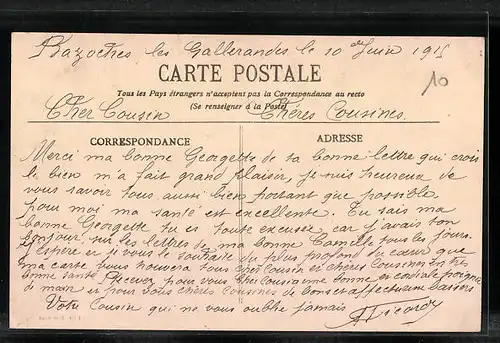 Bazoches les Gallerandes le 10 Juin 1915
10
CARTE POSTALE
Tous les Pays étrangers n'acceptent pas la Correspondance au recto
(Se renseigner à la Poste)
Cher Cousin Chères Cousines.
CORRESPONDANCE ADRESSE
Merci ma bonne Georgette de ta bonne lettre qui crois
le bien m'a fait grand plaisir, je suis heureux de
vous savoir tous aussi bien portant que possible,
pour moi ma santé est excellente. Tu sais ma
bonne Georgette tu es toute excusé car j'avais ton
bonjour sur les lettres de ma bonne Camille tous les jours.
J'espère et je vous le souhaite du plus profond du cœur que
ma carte vous trouvera tous cher Cousin et chères Cousines en très
bonne santé Recevez pour vous Cher Cousin une bonne et cordiale poignée
de main et pour vous chères Cousines de bons et affectueux baisers
Votre Cousin qui ne vous oublie jamais